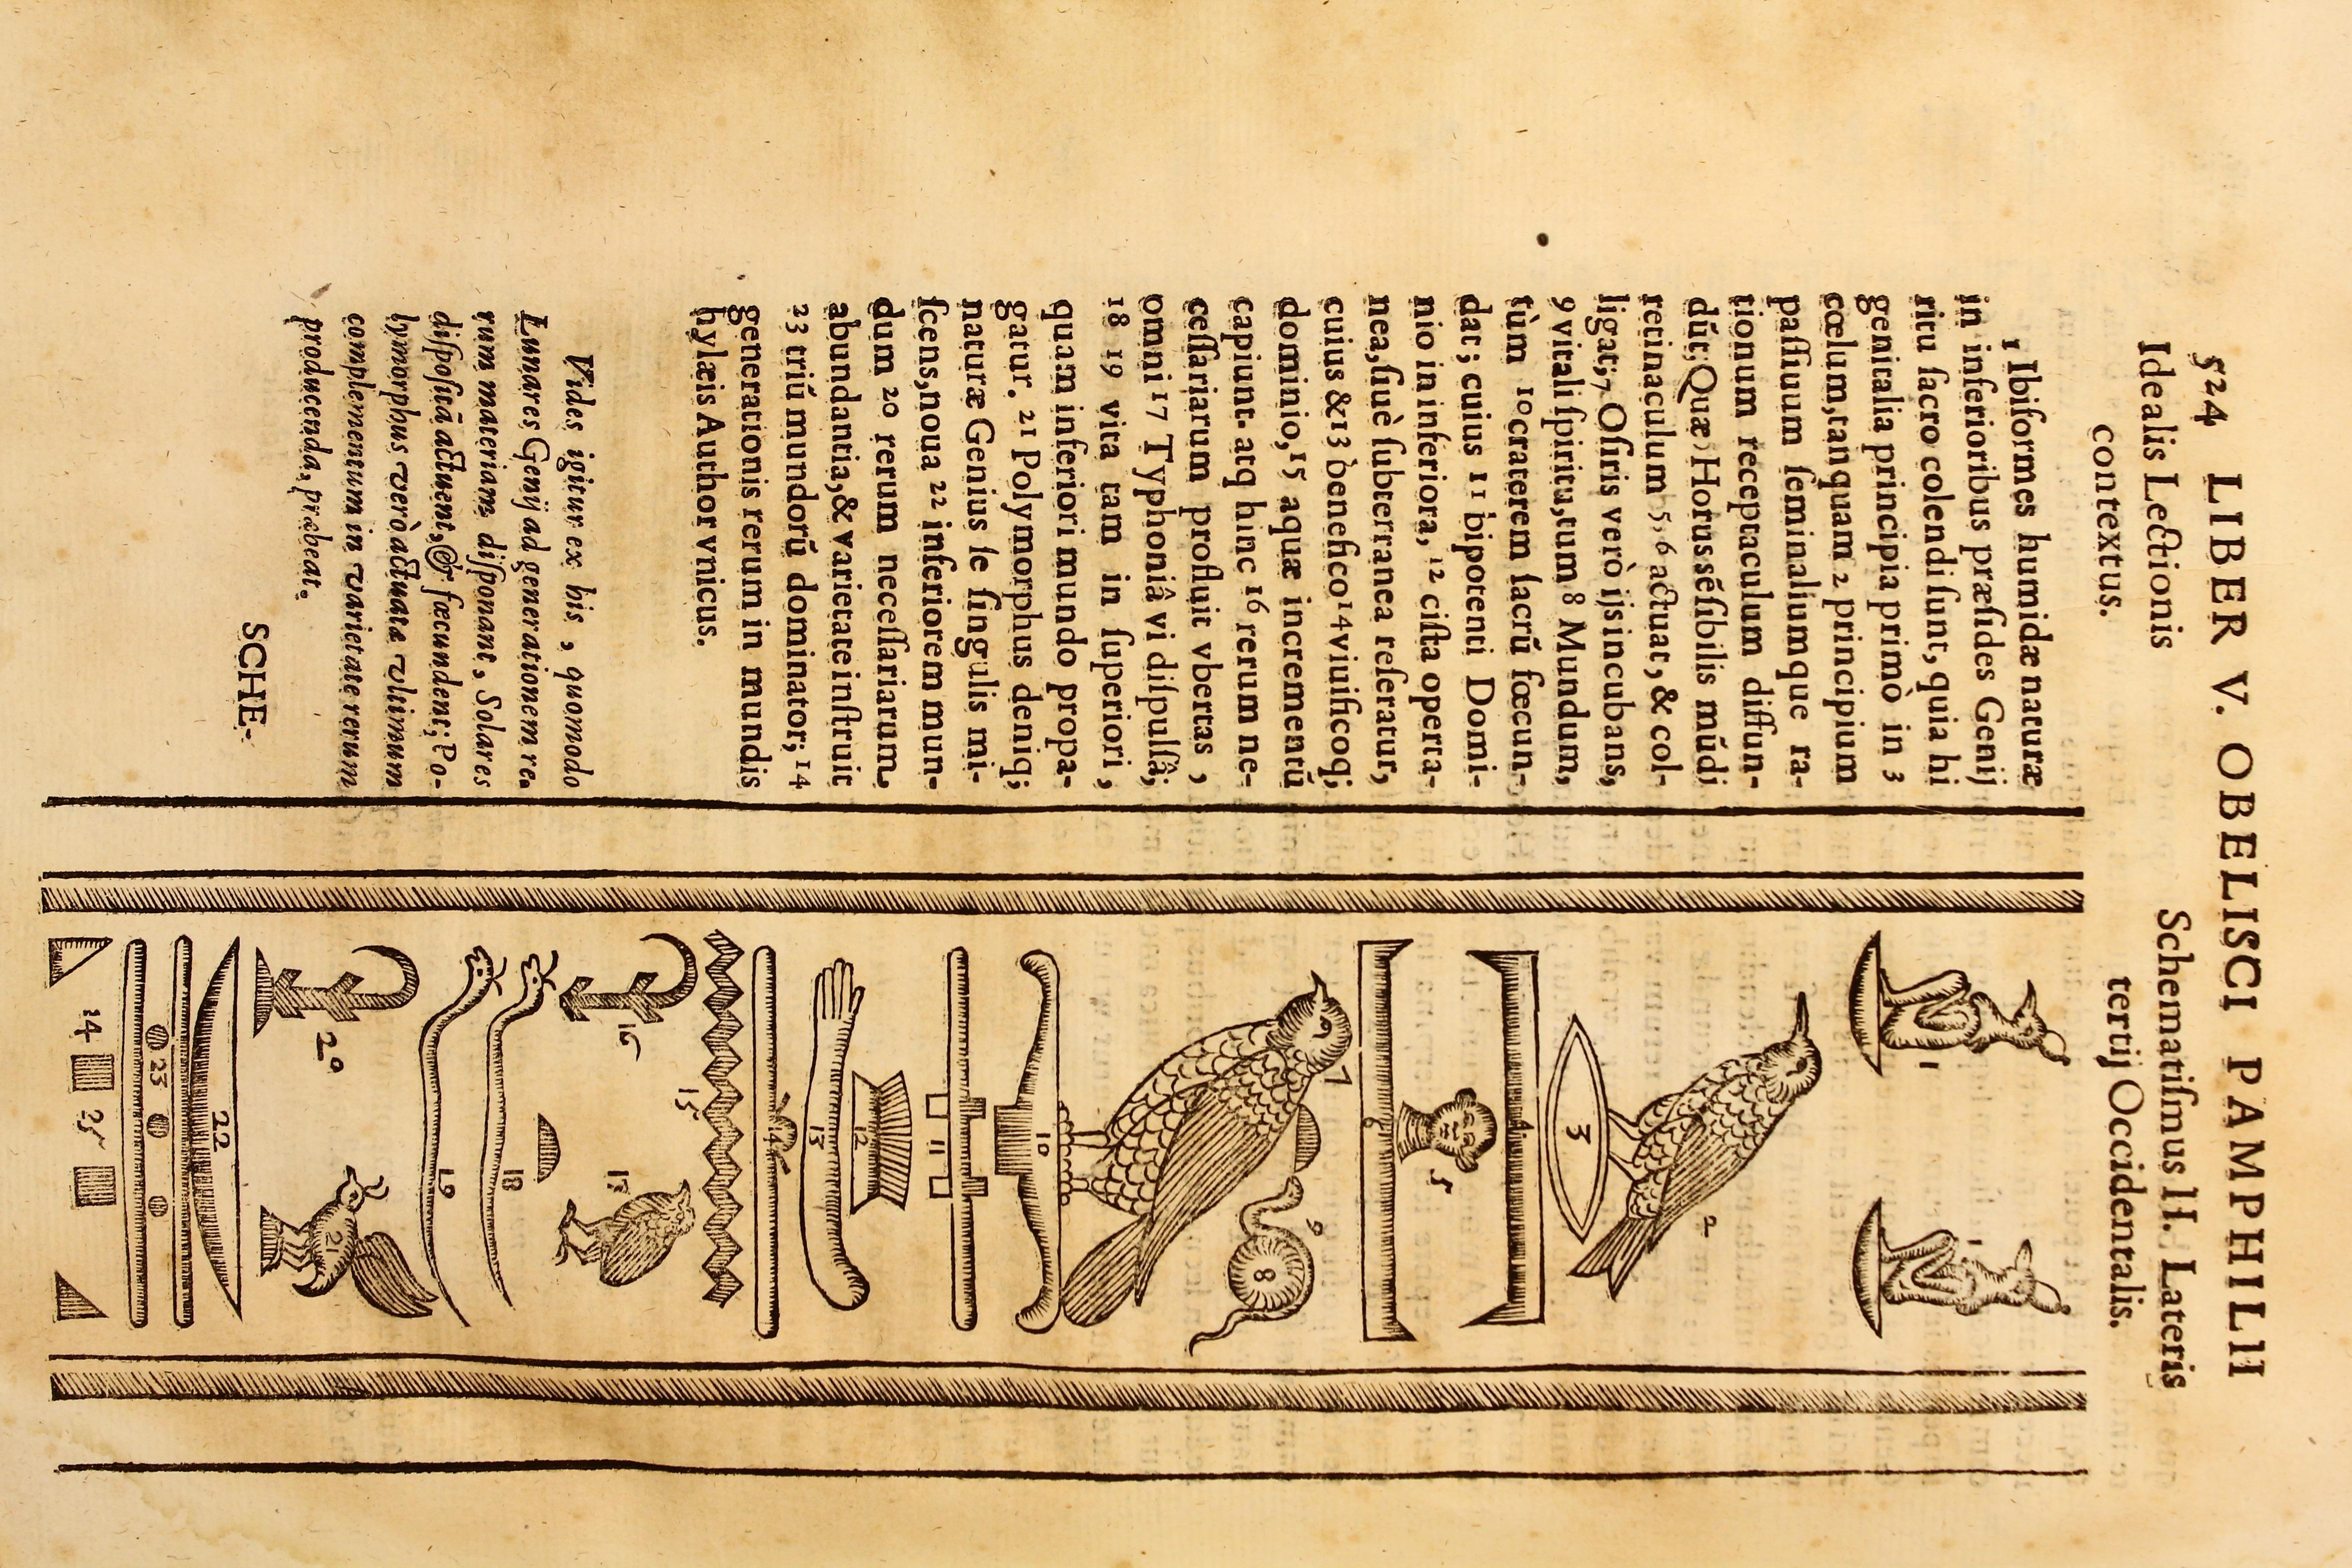 524 LIBER V. OBELISCI PAMPHILII
Idealis Lectionis
contextus.
1 Ibiformes humidæ naturæ
in inferioribus præſides Genij
ritu ſacro colendi ſunt, quia hi
genitalia principia primò in 3
cœlum, tanquam 2 principium
paſſiuum ſeminaliumque ra-
tionum receptaculum diffun-
dūt; Quæ Horus sēſibilis mūdi
retinaculum 5, 6 actuat, & col-
ligat; 7 Oſiris verò ijs incubans,
9 vitali ſpiritu, tum 8 Mundum,
tùm 10 craterem ſacrū fœcun-
dat; cuius 11 bipotenti Domi-
nio in inferiora, 12 ciſta operta-
nea, ſiuè ſubterranea reſeratur,
cuius & 13 benefico 14 viuificoq;
dominio, 15 aquæ incrementū
capiunt. atq hinc 16 rerum ne-
ceſſariarum profluit vbertas,
omni 17 Typhoniâ vi diſpulſâ;
18 19 vita tam in ſuperiori,
quam inferiori mundo propa-
gatur. 21 Polymorphus deniq;
naturæ Genius ſe ſingulis mi-
ſcens, noua 22 inferiorem mun-
dum 20 rerum neceſſariarum
abundantia, & varietate inſtruit
23 triū mundorū dominator; 14
generationis rerum in mundis
hylæis Author vnicus.
Vides igitur ex his, quomodo
Lunares Genij ad generationem re-
rum materiam diſponant, Solares
diſpoſitā actuent, & fœcundent; Po-
lymorphus verò actuata vltimum
complementum in varietate rerum
producenda, præbeat.
SCHE-
Schematiſmus II. Lateris
tertij Occidentalis.
1
1
2
3
4
5
6
7
9
8
10
11
12
13
14
15
16
17
18
19
20
21
22
23
14 25